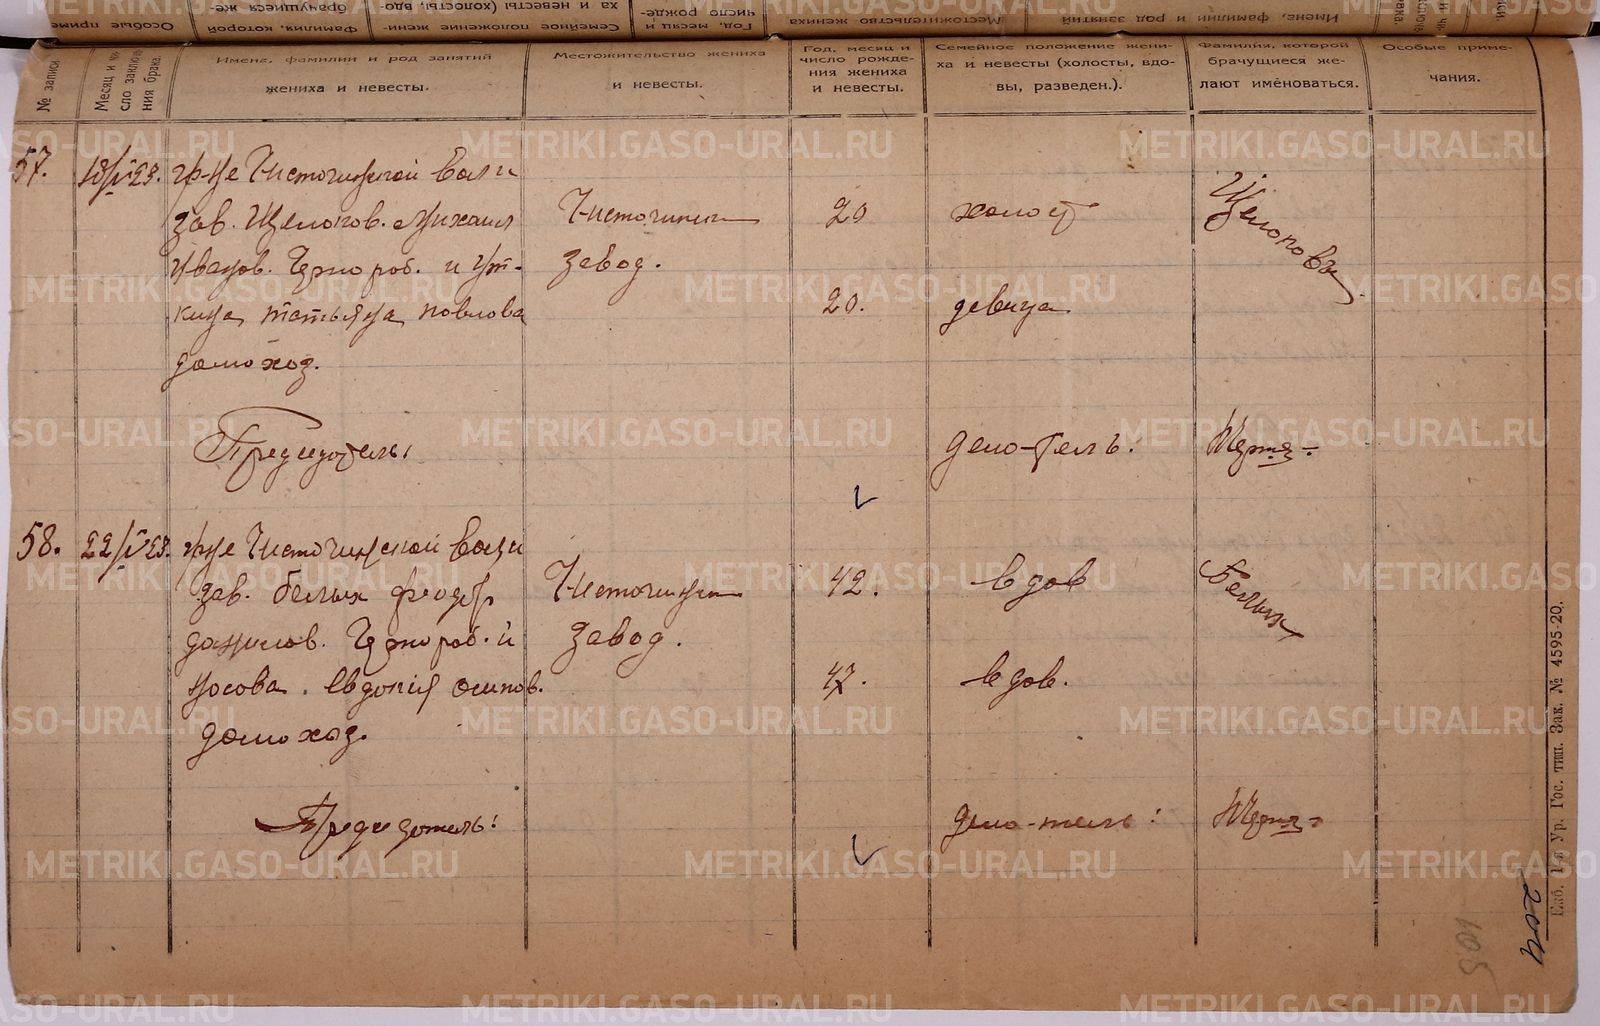 № записи
Месяц и чи-
сло заключе-
ния брака.
Имена, фамилии и род занятий
жениха и невесты.
Местожительство жениха
и невесты.
Год, месяц и
число рожде-
ния жениха
и невесты.
Семейное положение жени-
ха и невесты (холосты, вдо-
вы, разведен.).
Фамилия, которой
брачущиеся же-
лают именоваться.
Особые приме-
чания.
57.
18/V 23.
гр-не Нисточинской вол и
зав. Щелоков. Михаил
Иванов. Чернороб. и Ут-
кина, Татьяна Павлова
домохоз.
завод.
20
20.
холост
девица
Председатель:
Дело-тель:
58.
22/V 23.
зав. Белых Феодор
Данилов. Чернороб. и
Носова. Евдокия Осипов.
домохоз.
завод.
42.
47.
вдов
вдов.
Белых
Председатель:
Дело-тель:
Екб. 1-я Ур. Гос. тип. Зак. № 4595-20.
204
105
METRIKI.GASO-URAL.RU